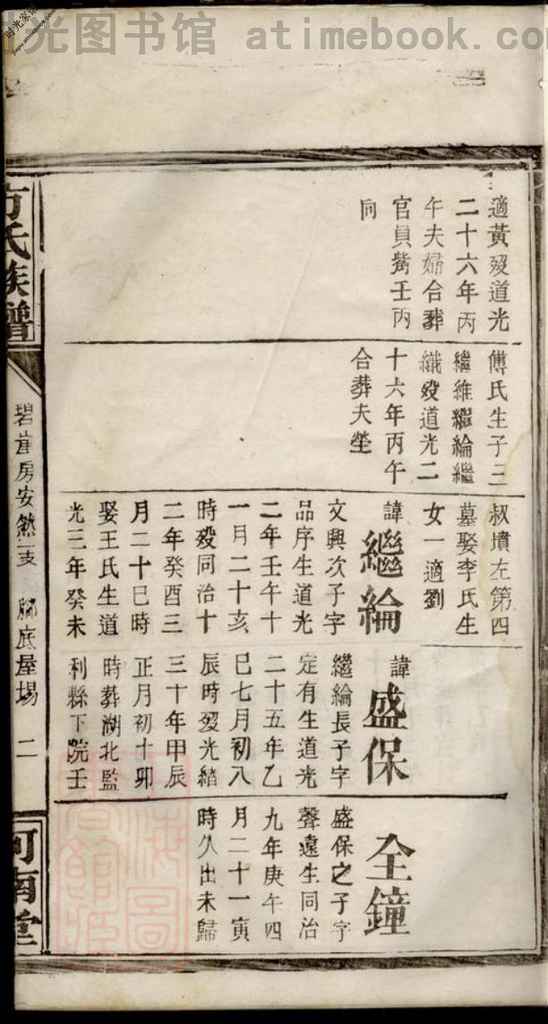 光图书馆 atimebook.com
適黃歿道光
二十六年丙
午夫婦合葬
官貟觜壬丙
同
傅氏生子三
繼維繼綸繼
纎歿道光二
十六年丙午
合葬夫塋
叔墳左第四
墓娶李氏生
女一適劉
諱繼綸
文興次子字
品序生道光
二年壬午十
一月二十亥
時歿同治十
二年癸酉三
月二十巳時
娶王氏生道
光三年癸未
諱盛保
繼綸長子字
定有生道光
二十五年乙
巳七月初八
辰時歿光緒
三十年甲辰
正月初十卯
時葬湖北監
利縣下院壬
全鐘
盛保之子字
聲遠生同治
九年庚午四
月二十一寅
時久出未歸
方氏族譜
房安然支
底屋場
二
河南堂